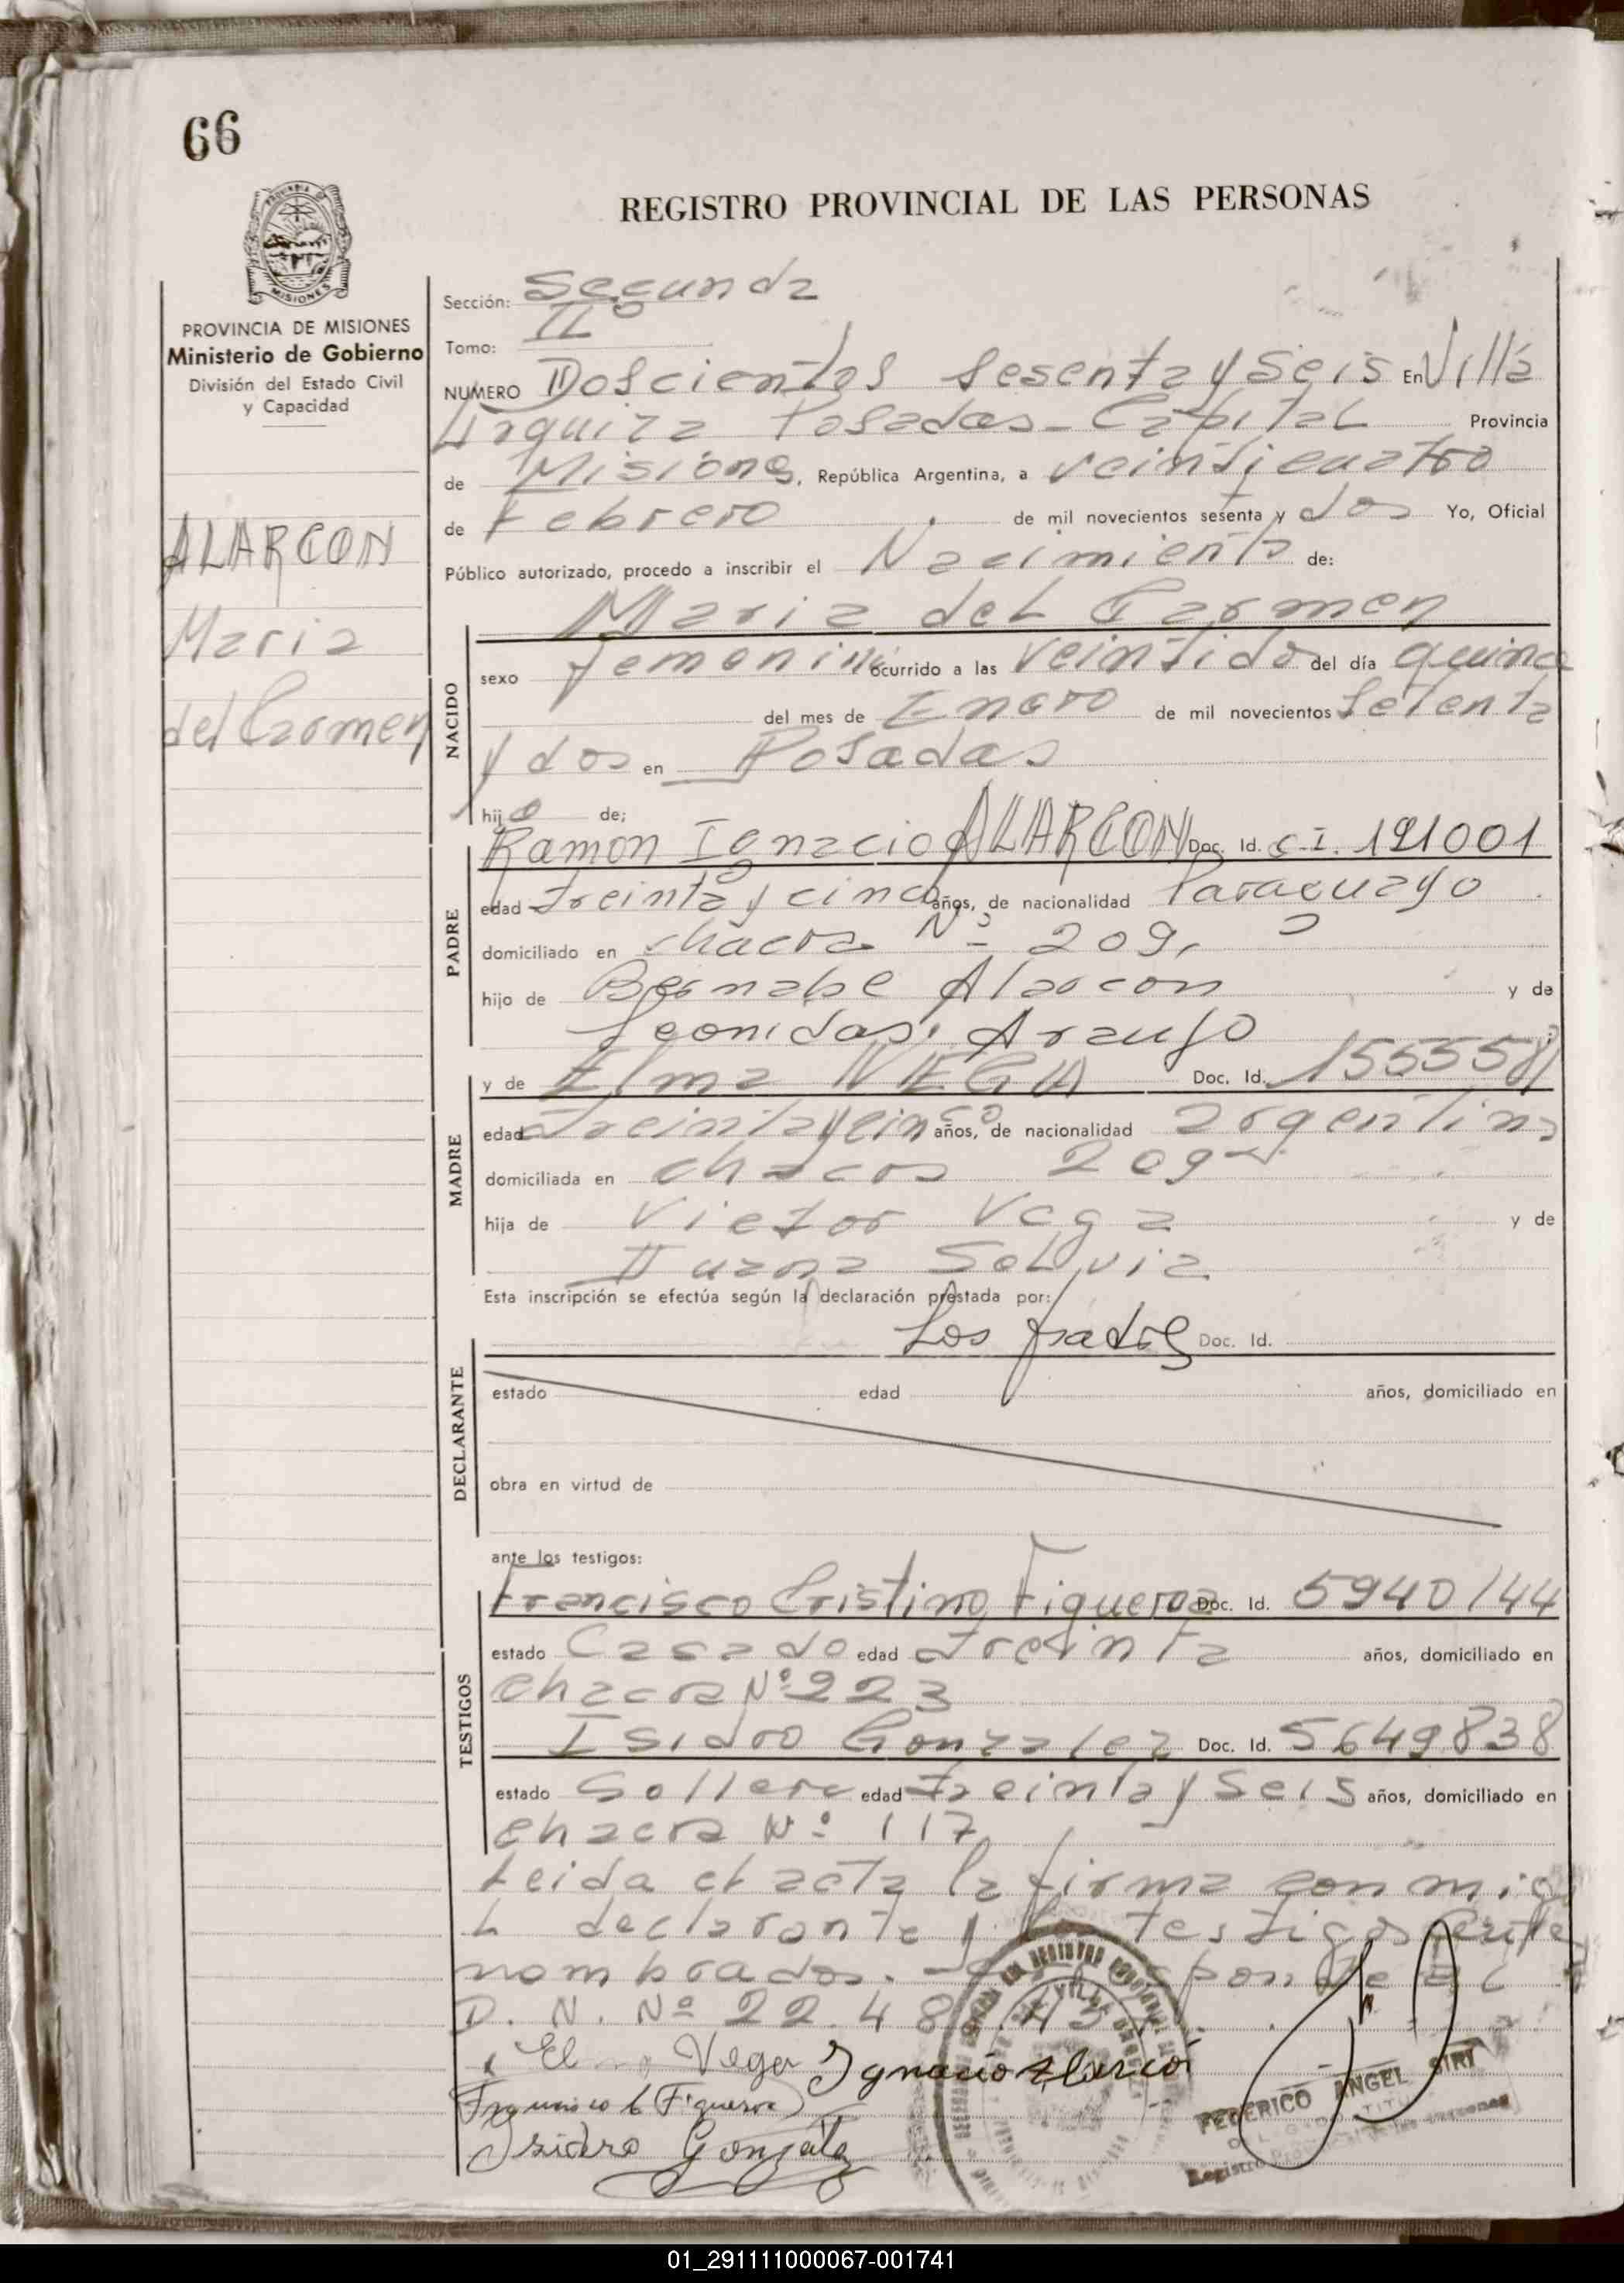 66
REGISTRO PROVINCIAL DE LAS PERSONAS
MISIONES
PROVINCIA DE MISIONES
Ministerio de Gobierno
División del Estado Civil
y Capacidad
ALARCON
Maria
del Carmen
Sección: Segunda
Tomo: IIº
NUMERO Doscientos sesenta y seis En Villa
Urquiza Posadas - Capital Provincia
de Misiones, República Argentina, a veinticuatro
de Febrero de mil novecientos sesenta y dos Yo, Oficial
Público autorizado, procedo a inscribir el Nacimiento de:
Maria del Carmen
NACIDO
sexo femenino ocurrido a las veintidos del día quince
del mes de Enero de mil novecientos setenta
y dos en Posadas
hija de;
PADRE
Ramon Ignacio ALARCON Doc. Id. C.I. 191001
edad treinta y cinco años, de nacionalidad Paraguayo
domiciliado en chacra Nº 209,
hijo de Bernabe Alarcon y de
Leonidas Araujo
MADRE
y de Elma VEGA Doc. Id. 155558
edad treinta y cinco años, de nacionalidad argentina
domiciliada en chacra 209
hija de Victor Vega y de
Juana
Esta inscripción se efectúa según la declaración prestada por:
Los padres Doc. Id.
DECLARANTE
estado edad años, domiciliado en
obra en virtud de
ante los testigos:
TESTIGOS
Francisco Cristino Figueroa Doc. Id. 5940144
estado Casado edad treinta años, domiciliado en
chacra Nº 223
Isidro Gonzalez Doc. Id. 5649838
estado Soltero edad treinta y seis años, domiciliado en
chacra Nº 117
Leida el acta la firma conmigo
L declarante y testigos
nombrados.
D. N. Nº 22.48
Vega Ignacio Alarcon
Francisco C Figueroa
Isidro Gonzalez
FEDERICO ANGEL SIRI
01_291111000067-001741